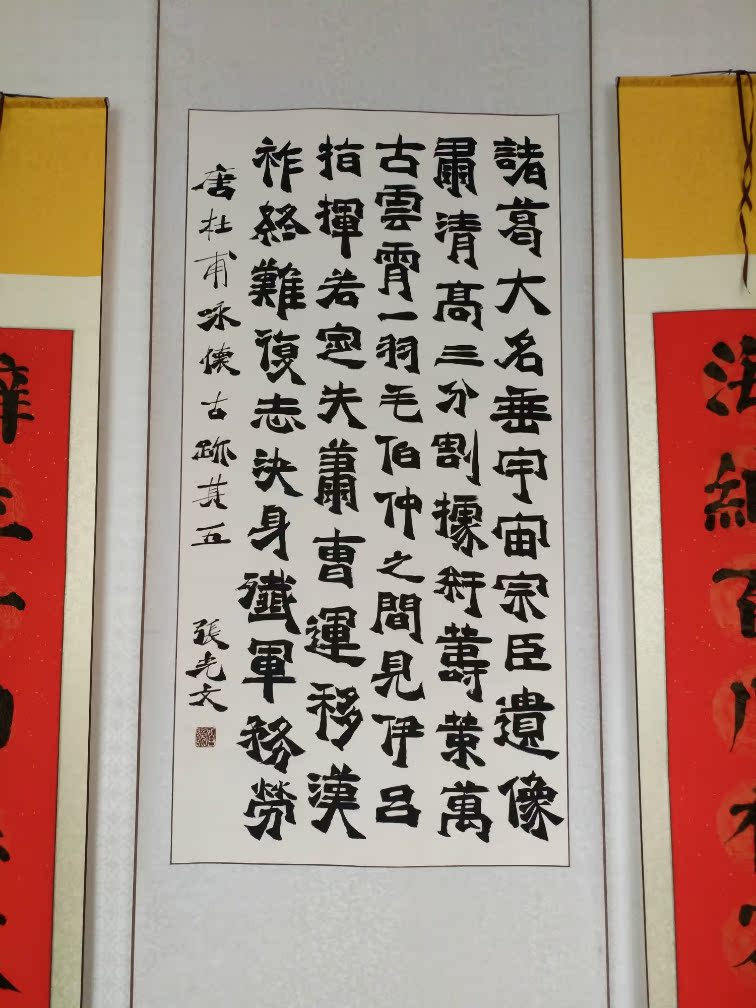 諸葛大名垂宇宙宗臣遺像
肅清高三分割據紆籌策萬
古雲霄一羽毛伯仲之間見伊呂
指揮若定失蕭曹運移漢
祚終難復志決身殲軍務勞
唐杜甫咏懷古跡其五 張光文